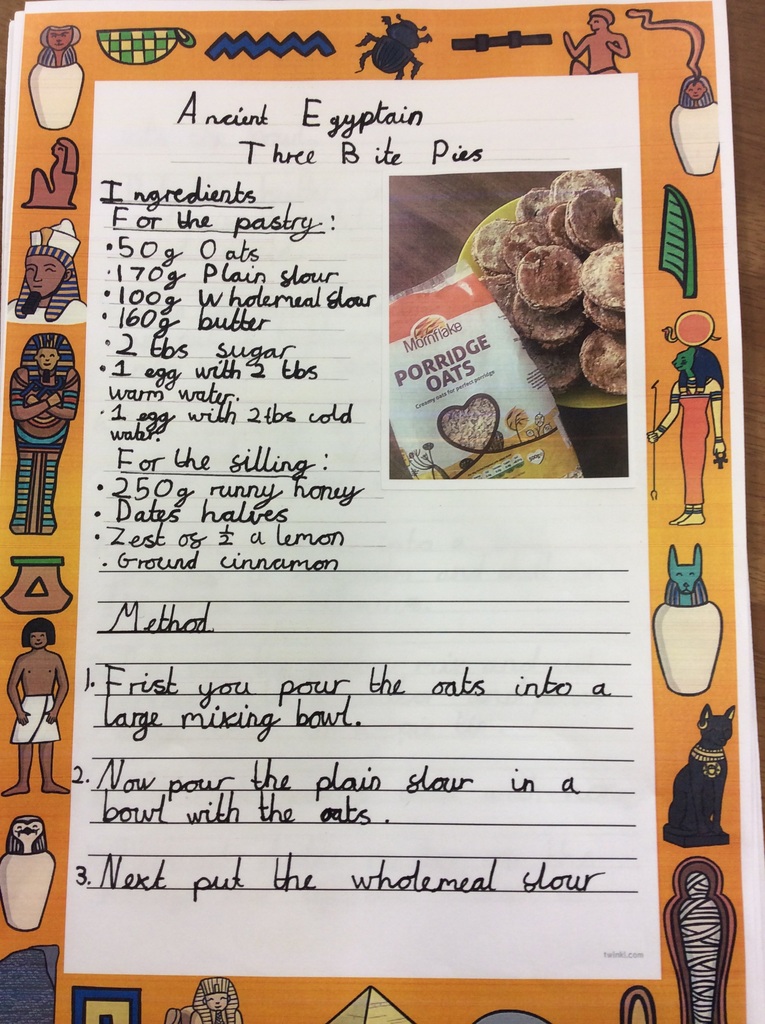 Ancient Egyptain
Three Bite Pies
Ingredients
For the pastry:
• 50g Oats
• 170g Plain slour
• 100g Wholemeal slour
• 160g butter
• 2 tbs sugar
• 1 egg with 2 tbs
warm water.
• 1 egg with 2tbs cold
water.
For the silling:
• 250g runny honey
• Dates halves
• Zest os ½ a lemon
• Ground cinnamon
Mornflake
PORRIDGE
OATS
Creamy oats for perfect porridge
Method
1. Frist you pour the oats into a
large mixing bowl.
2. Now pour the plain slour in a
bowl with the oats.
3. Next put the wholemeal slour
twinkl.com